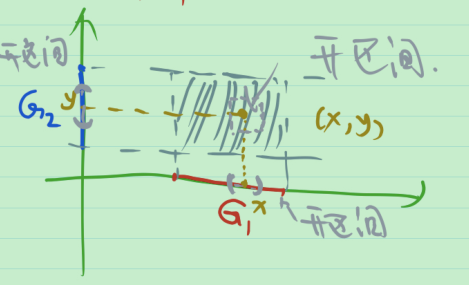 开区间
开区间.
G₂
y
(x,y)
G₁
x
开区间